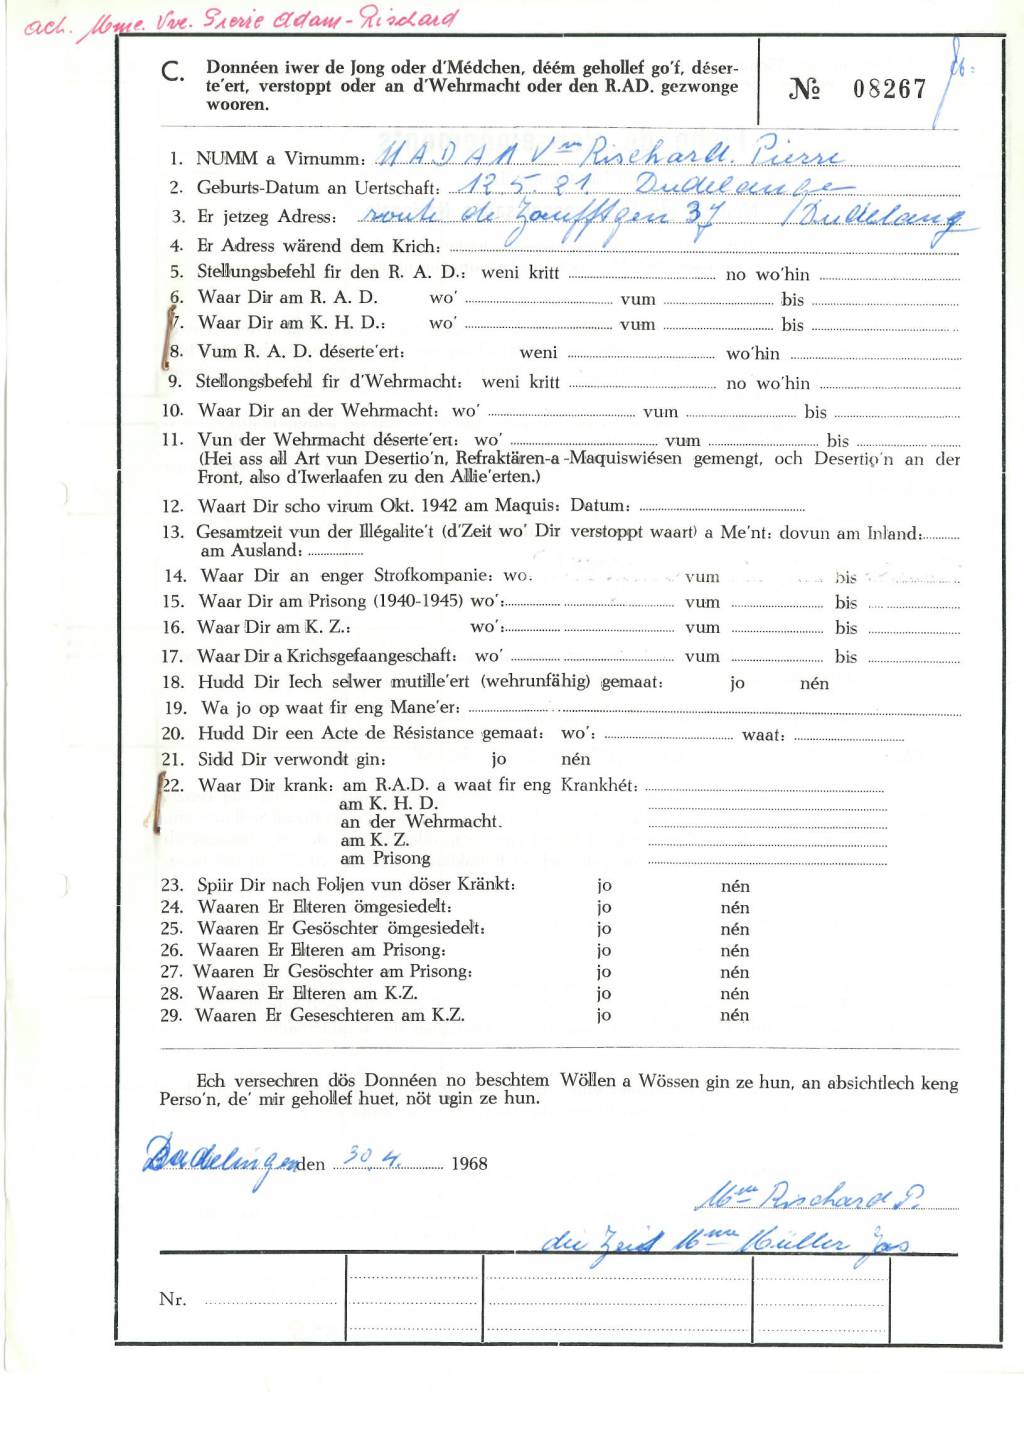 ach. Mme. Vve. Pierre Adam-Rischard
C. Donnéen iwer de Jong oder d'Médchen, déém gehollef go'f, déser-
te'ert, verstoppt oder an d'Wehrmacht oder den R.AD. gezwonge
wooren.
№ 08267
1. NUMM a Virnumm: MADAM Vve Rischard. Pierre
2. Geburts-Datum an Uertschaft: 12 5. 21 Dudelange
3. Er jetzeg Adress: route de Zoufftgen 37 Dudelang
4. Er Adress wärend dem Krich:
5. Stellungsbefehl fir den R. A. D.: weni kritt no wo'hin
6. Waar Dir am R. A. D. wo' vum bis
7. Waar Dir am K. H. D.: wo' vum bis
8. Vum R. A. D. déserte'ert: weni wo'hin
9. Stellongsbefehl fir d'Wehrmacht: weni kritt no wo'hin
10. Waar Dir an der Wehrmacht: wo' vum bis
11. Vun der Wehrmacht déserte'ert: wo' vum bis
(Hei ass all Art vun Desertio'n, Refraktären-a-Maquiswiésen gemengt, och Desertio'n an der
Front, also d'Iwerlaafen zu den Allie'erten.)
12. Waart Dir scho virum Okt. 1942 am Maquis: Datum:
13. Gesamtzeit vun der Illégalite't (d'Zeit wo' Dir verstoppt waart) a Me'nt: dovun am Inland:
am Ausland:
14. Waar Dir an enger Strofkompanie: wo: vum bis
15. Waar Dir am Prisong (1940-1945) wo': vum bis
16. Waar Dir am K. Z.: wo': vum bis
17. Waar Dir a Krichsgefaangeschaft: wo' vum bis
18. Hudd Dir Iech selwer mutille'ert (wehrunfähig) gemaat: jo nén
19. Wa jo op waat fir eng Mane'er:
20. Hudd Dir een Acte de Résistance gemaat: wo': waat:
21. Sidd Dir verwondt gin: jo nén
22. Waar Dir krank: am R.A.D. a waat fir eng Krankhét:
am K. H. D.
an der Wehrmacht.
am K. Z.
am Prisong
23. Spiir Dir nach Foljen vun döser Kränkt: jo nén
24. Waaren Er Elteren ömgesiedelt: jo nén
25. Waaren Er Gesöschter ömgesiedelt: jo nén
26. Waaren Er Elteren am Prisong: jo nén
27. Waaren Er Gesöschter am Prisong: jo nén
28. Waaren Er Elteren am K.Z. jo nén
29. Waaren Er Geseschteren am K.Z. jo nén
Ech versechren dös Donnéen no beschtem Wöllen a Wössen gin ze hun, an absichtlech keng
Perso'n, de' mir gehollef huet, nöt ugin ze hun.
Dudelingen den 30. 4. 1968
Mme Rischard P.
die Zeit Mme Müller Jos
Nr.